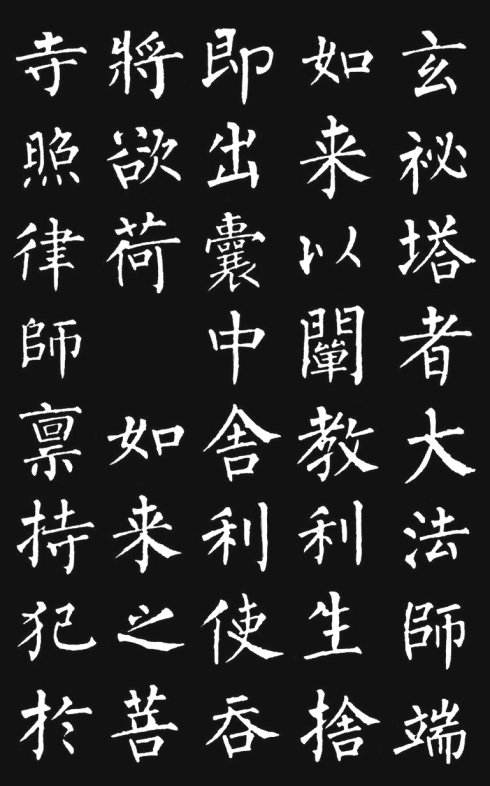 玄祕塔者大法師端
如来以闡教利生捨
即出囊中舍利使吞
將欲荷 如来之菩
寺照律師稟持犯於